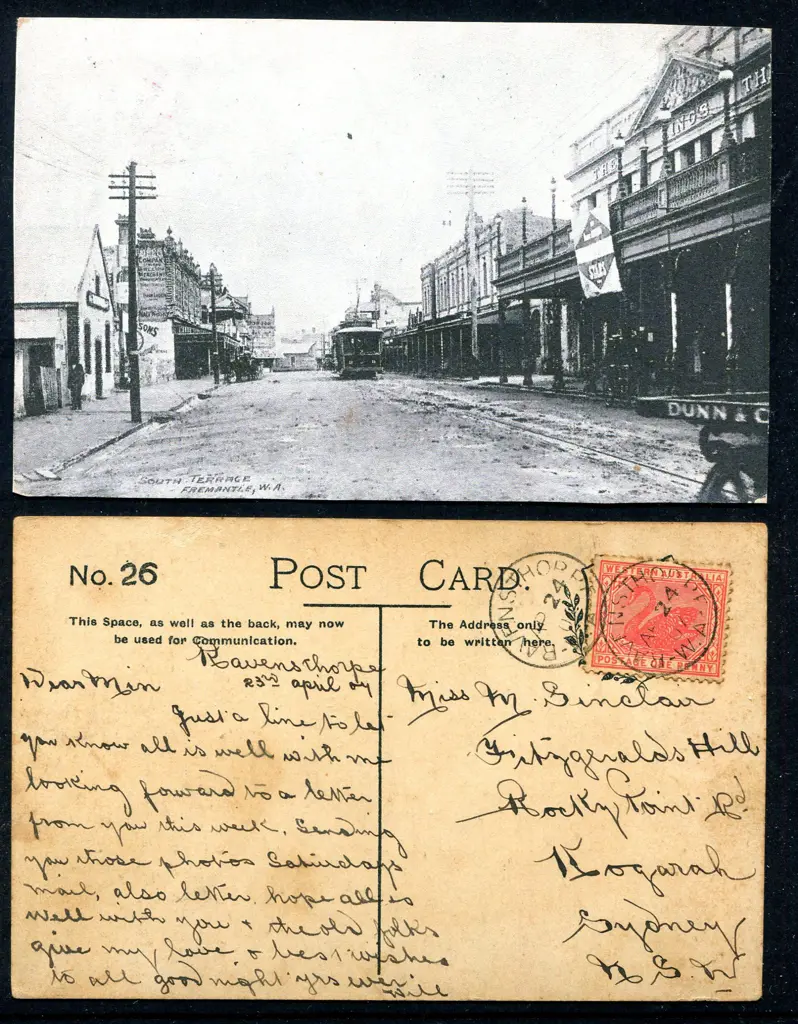 THE
KING'S
TH
SILKS
SONS
DUNN & C
SOUTH TERRACE
FREMANTLE, W.A.
No. 26
POST CARD.
This Space, as well as the back, may now
be used for Communication.
The Address only
to be written here.
RAVENSTHORPE
AP 24
WESTERN AUSTRALIA
POSTAGE ONE PENNY
RAVENSTHORPE
AP 24
W.A
Ravensthorpe
23rd april 07
Dear Min
Just a line to let
you know all is well with me
looking forward to a letter
from you this week. Sending
you those photos Saturdays
mail, also letter. hope all is
well with you + the old folks
give my love & best wishes
to all good night yrs ever
Will
Miss M. Sinclair
Fitzgeralds Hill
Rocky Point Rd
Kogarah
Sydney
N. S. W